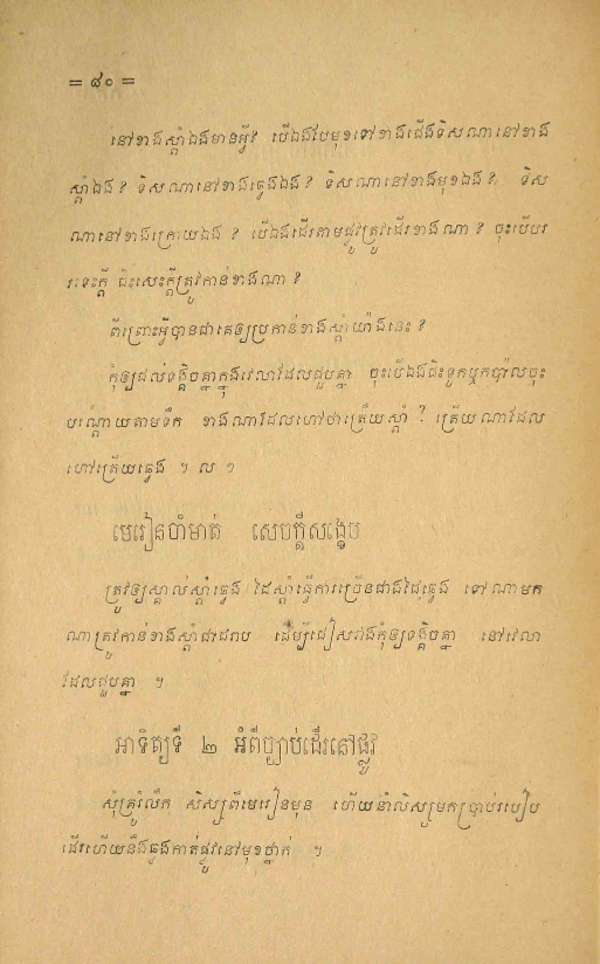 = ៨០ =
នៅខាងស្ដាំឯងមានអ្វី? បើឯងបែមុខទៅខាងជើងទិសណានៅខាង
ស្ដាំឯង? ទិសណានៅខាងឆ្វេងឯង? ទិសណានៅខាងមុខឯង? ទិស
ណានៅខាងក្រោយឯង? បើឯងដើរតាមផ្លូវត្រូវដើរខាងណា? ចុះបើបរ
រទេះក្ដី ជិះសេះក្ដីត្រូវកាន់ខាងណា?
ពីព្រោះអ្វីបានជាគេឲ្យប្រកាន់ខាងស្ដាំយ៉ាងនេះ?
កុំឲ្យដល់ទង្គិចគ្នាក្នុងវេលាដែលជួបគ្នា ចុះបើឯងជិះទូកឬកប៉ាល់ចុះ
បណ្ដោយតាមទឹក ខាងណាដែលហៅថាត្រើយស្ដាំ? ត្រើយណាដែល
ហៅត្រើយឆ្វេង ។ ល ។
មេរៀនចាំមាត់ សេចក្ដីសង្ខេប
ត្រូវឲ្យស្គាល់ស្ដាំឆ្វេង ដៃស្ដាំធ្វើការច្រើនជាងដៃឆ្វេង ទៅណាមក
ណាត្រូវកាន់ខាងស្ដាំជាដរាប ដើម្បីជៀសវាងកុំឲ្យទង្គិចគ្នា នៅវេលា
ដែលជួបគ្នា ។
អាទិត្យទី ២ អំពីច្បាប់ដើរនៅផ្លូវ
សុំគ្រូរំលឹក សិស្សពីមេរៀនមុន ហើយនាំសិស្សមកប្រាប់របៀប
ដើរហើយនឹងឆ្លងកាត់ផ្លូវនៅមុខថ្នាក់ ។